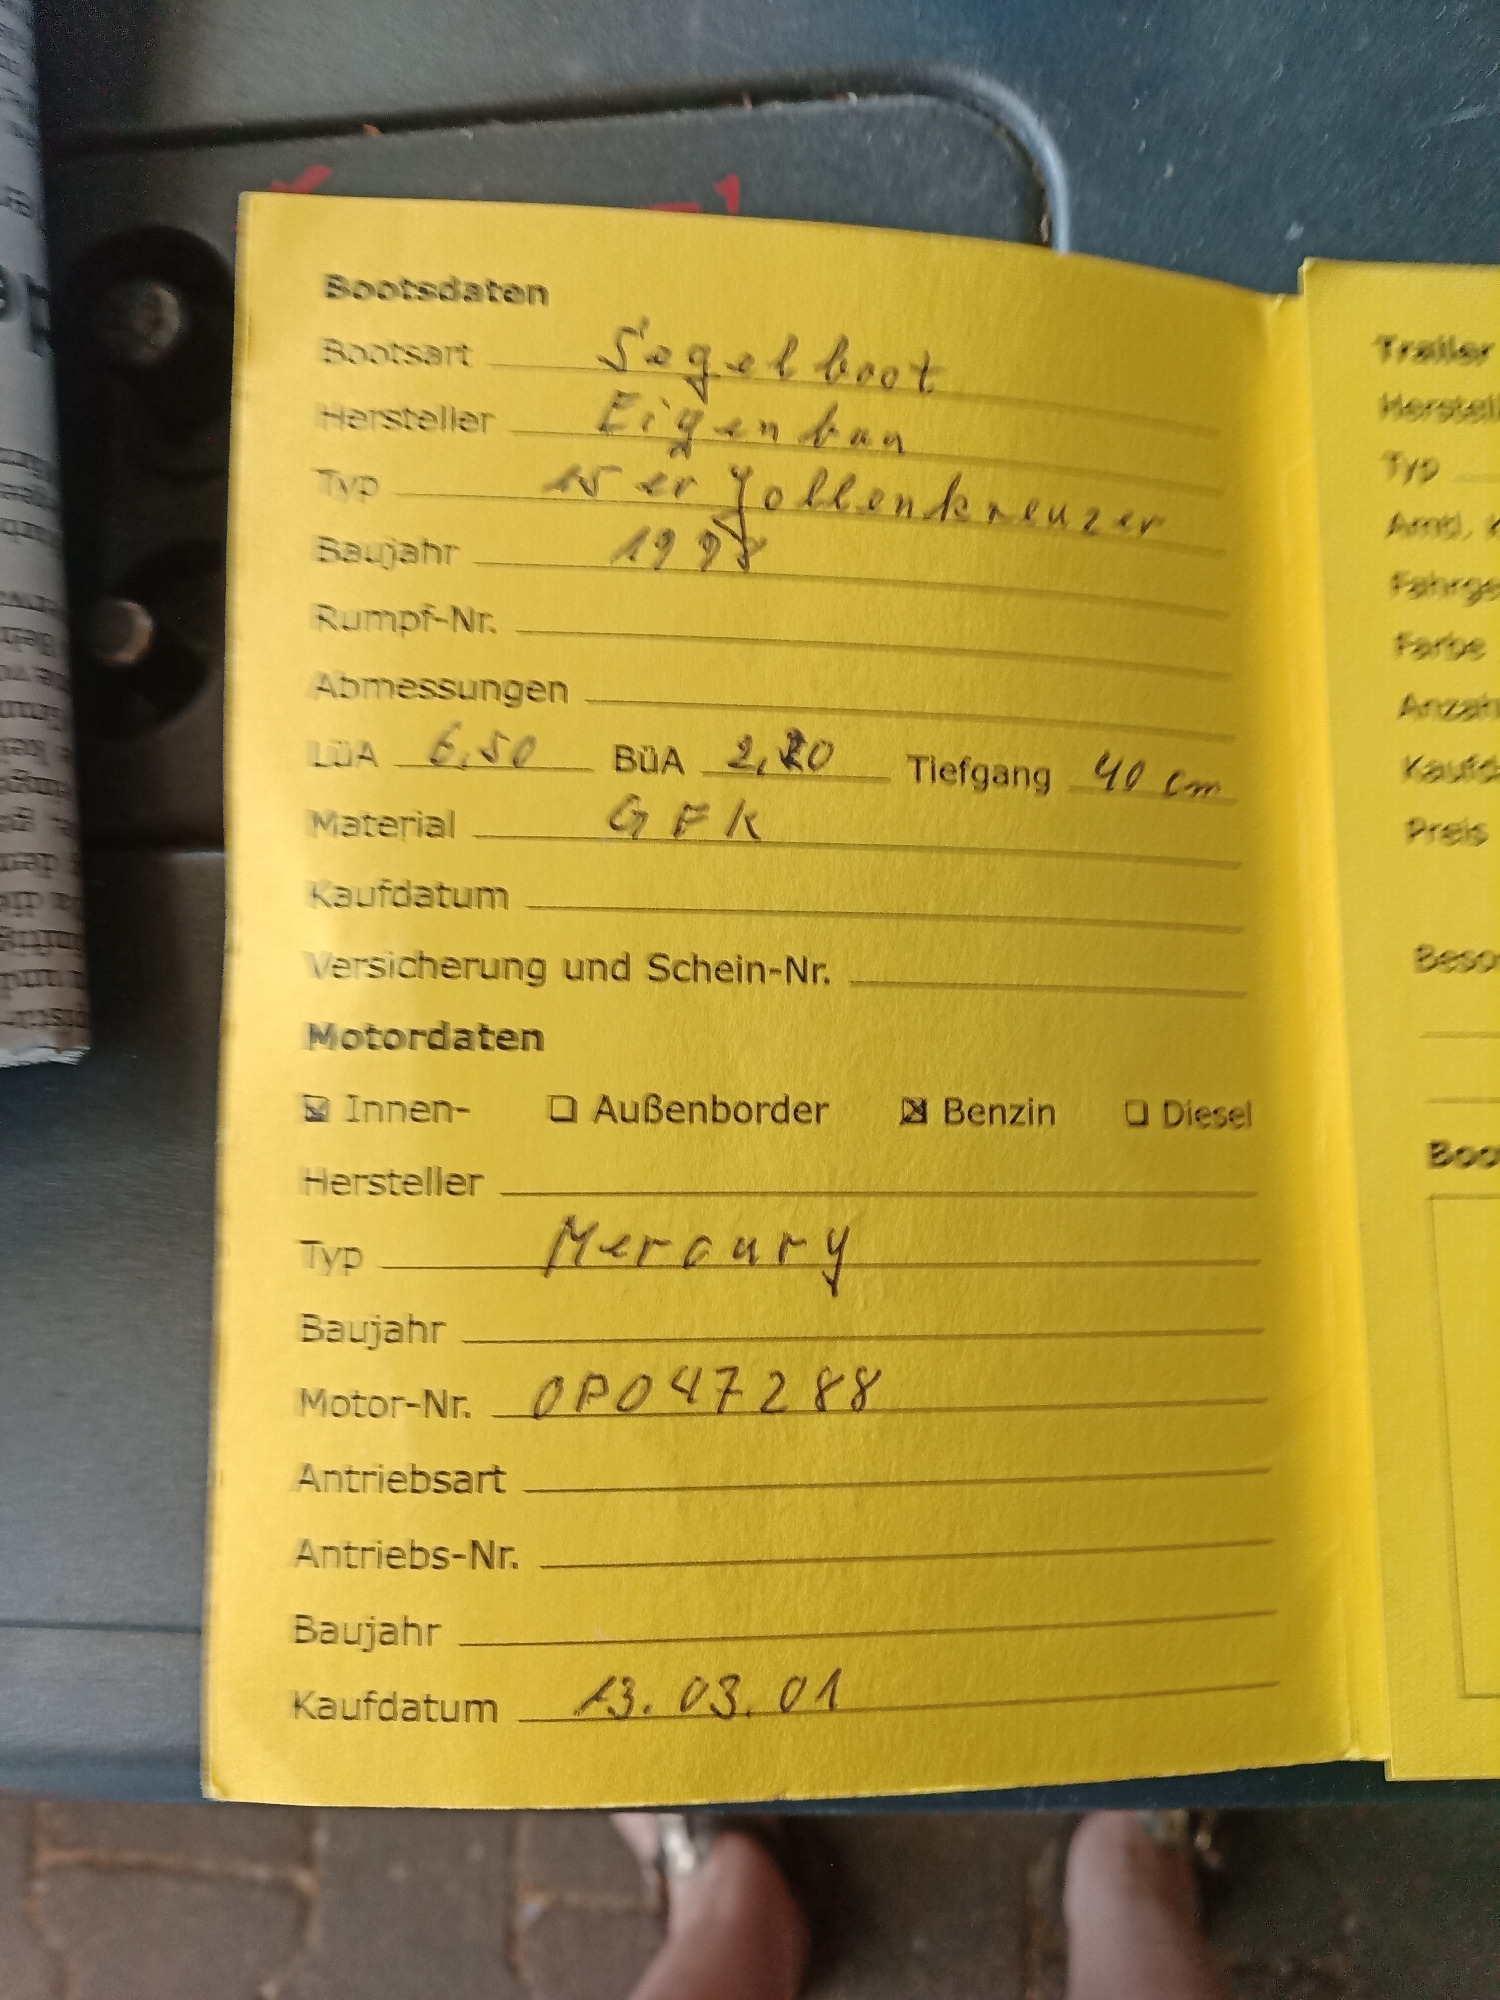 Bootsdaten
Bootsart Segelboot
Hersteller Eigenbau
Typ 15 er Jollenkreuzer
Baujahr 1998
Rumpf-Nr.
Abmessungen
LüA 6,50 BüA 2,20 Tiefgang 40 cm
Material GFK
Kaufdatum
Versicherung und Schein-Nr.
Motordaten
Innen- Außenborder Benzin Diesel
Hersteller
Typ Mercury
Baujahr
Motor-Nr. 0P047288
Antriebsart
Antriebs-Nr.
Baujahr
Kaufdatum 13.03.01
Trailer
Typ
Farbe
Preis